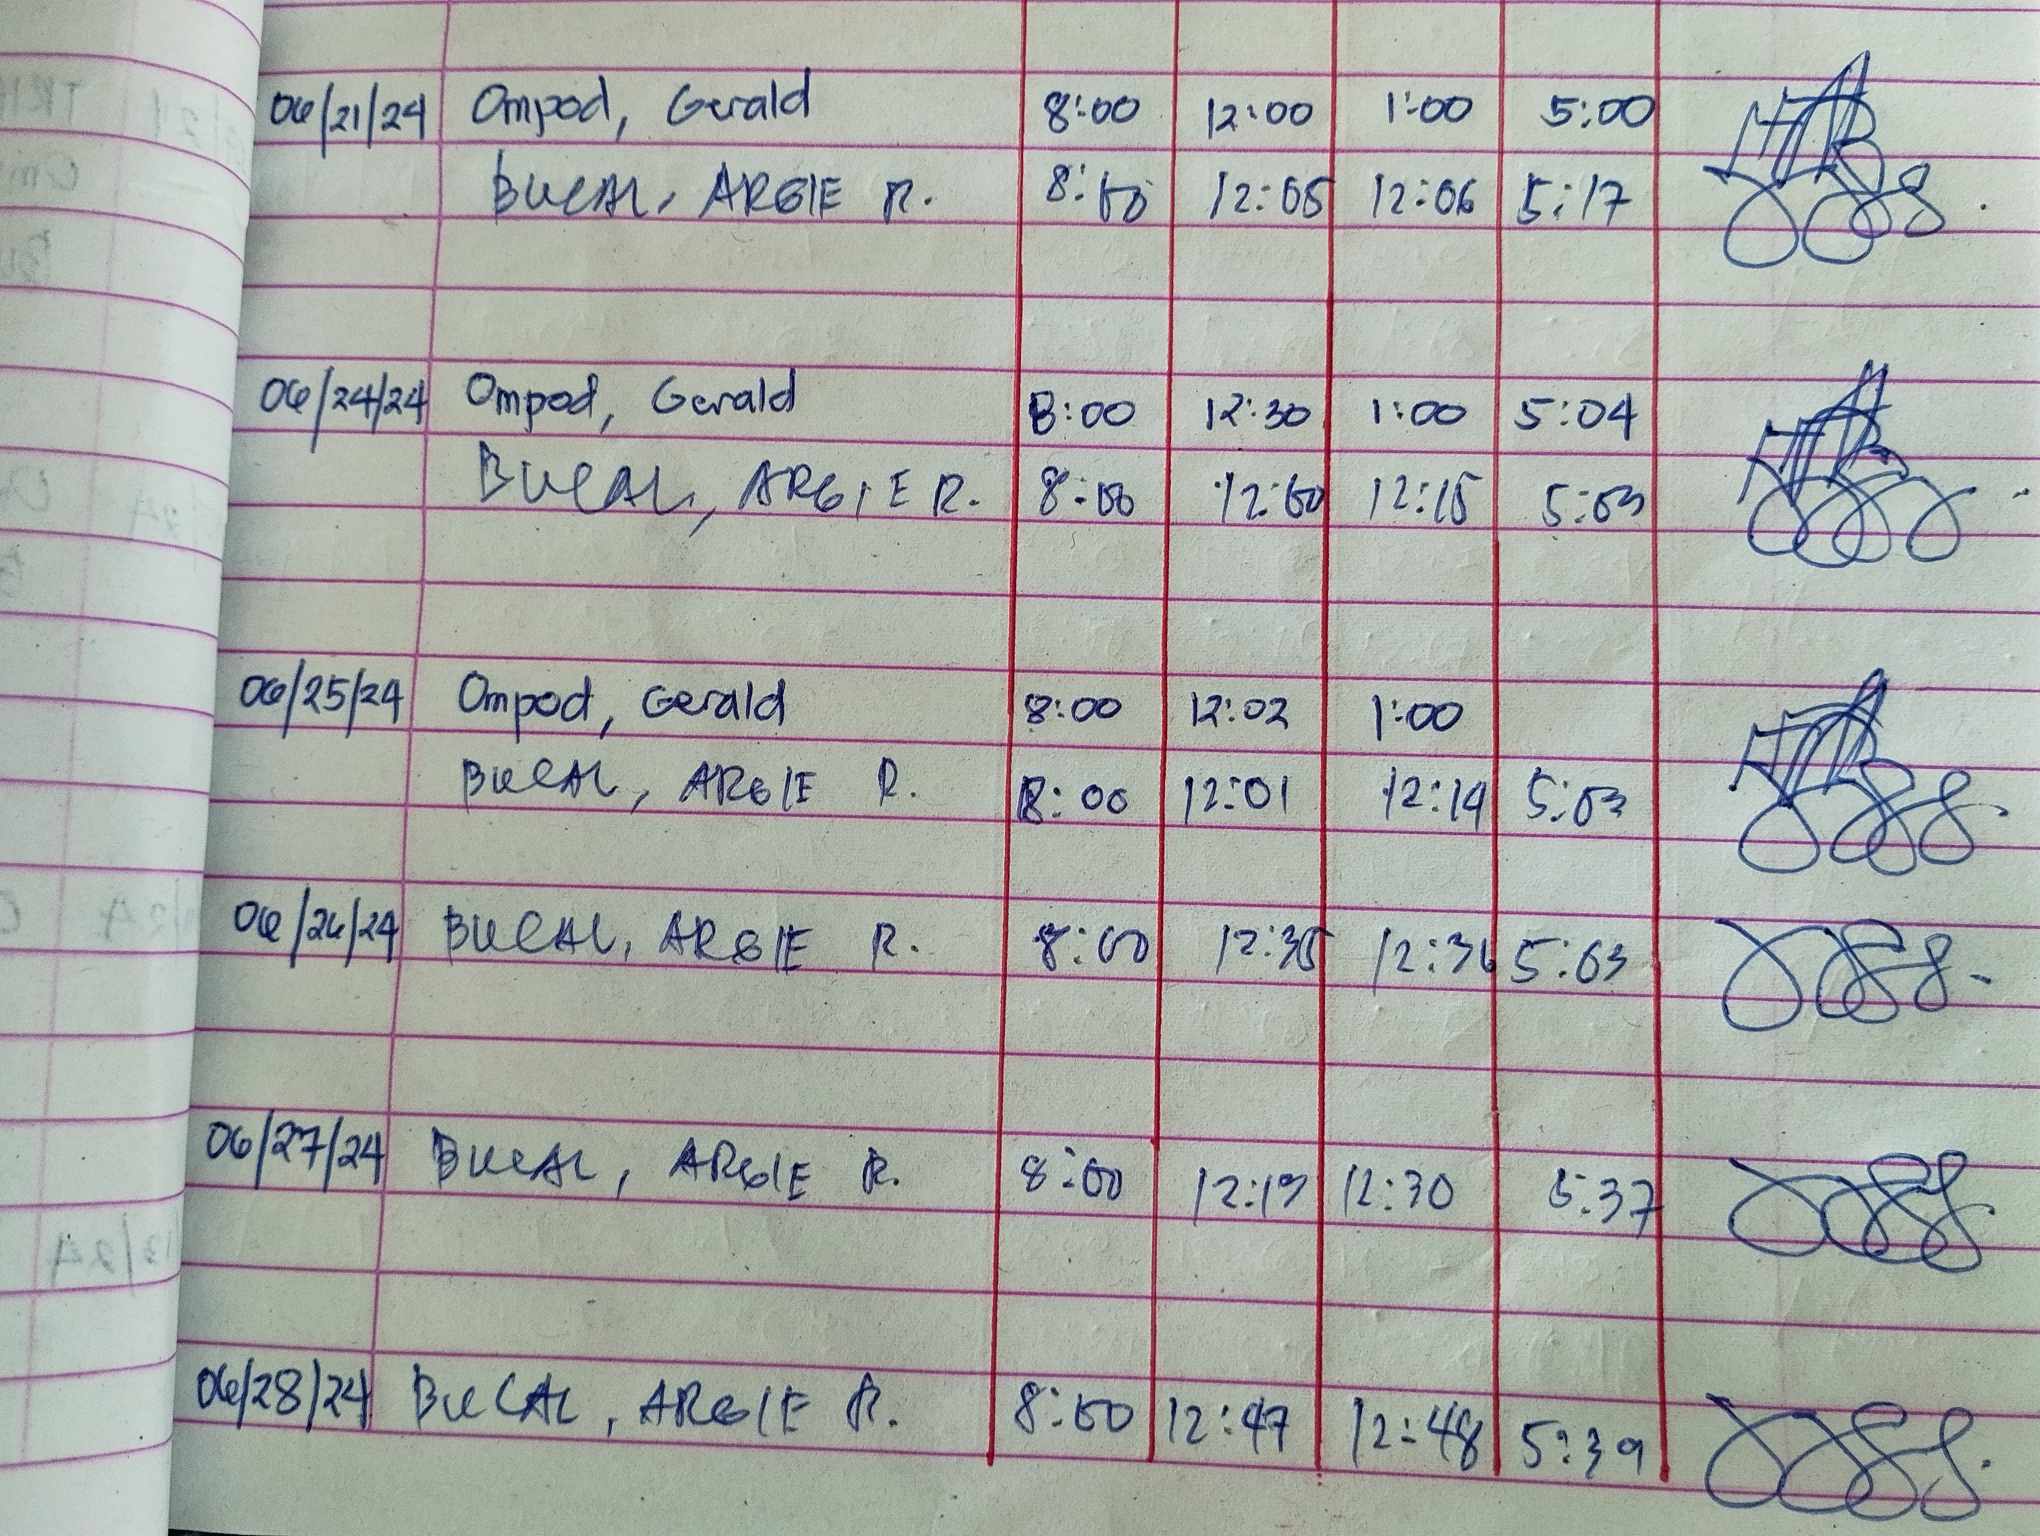 06/21/24 Ompod, Gerald 8:00 12:00 1:00 5:00
BUCAL, ARGIE R. 8:00 12:05 12:06 5:17
06/24/24 Ompod, Gerald 8:00 12:30 1:00 5:04
BUCAL, ARGIE R. 8:00 12:00 12:15 5:03
06/25/24 Ompod, Gerald 8:00 12:02 1:00
BUCAL, ARGIE R. 8:00 12:01 12:14 5:03
06/26/24 BUCAL, ARGIE R. 8:00 12:35 12:36 5:03
06/27/24 BUCAL, ARGIE R. 8:00 12:19 12:30 5:37
06/28/24 BUCAL, ARGIE R. 8:00 12:47 12:48 5:39